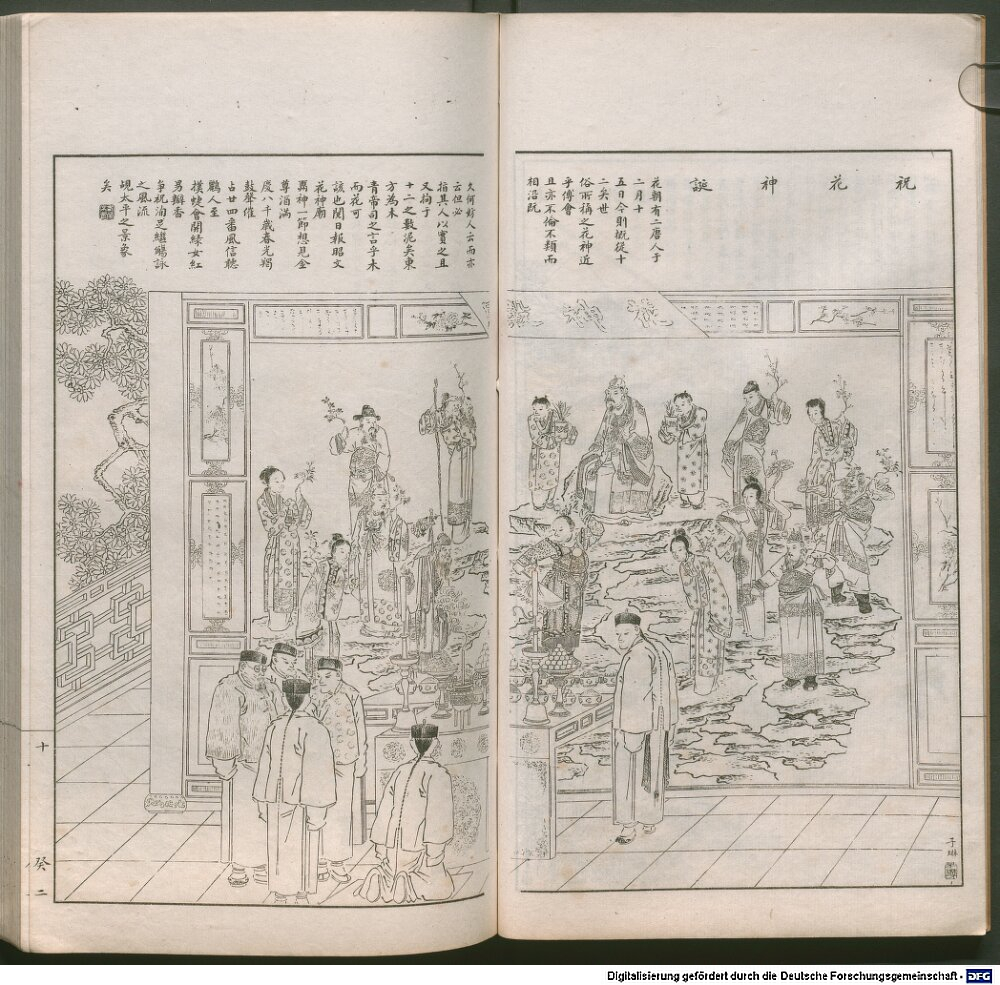 祝花神誕
花朝有二唐人于
二月十
五日今則概從十
二矣世
俗所稱之花神近
乎傅會
且亦不倫不類而
相沿既
久何妨人云而亦
云但必
指其人以實之且
又拘于
十二之數泥矣東
方為木
青帝司之言乎木
而花可
該也閱日報昭文
花神廟
萬神一節想見全
尊酒滿
慶八千歲春光羯
鼓聲催
占廿四番風信聽
鸝人至
撲蜨會開綠女紅
男瓣香
爭祝洵足繼觴詠
之風流
覘太平之景象
矣
子琳
十
癸二
Digitalisierung gefördert durch die Deutsche Forschungsgemeinschaft - DFG